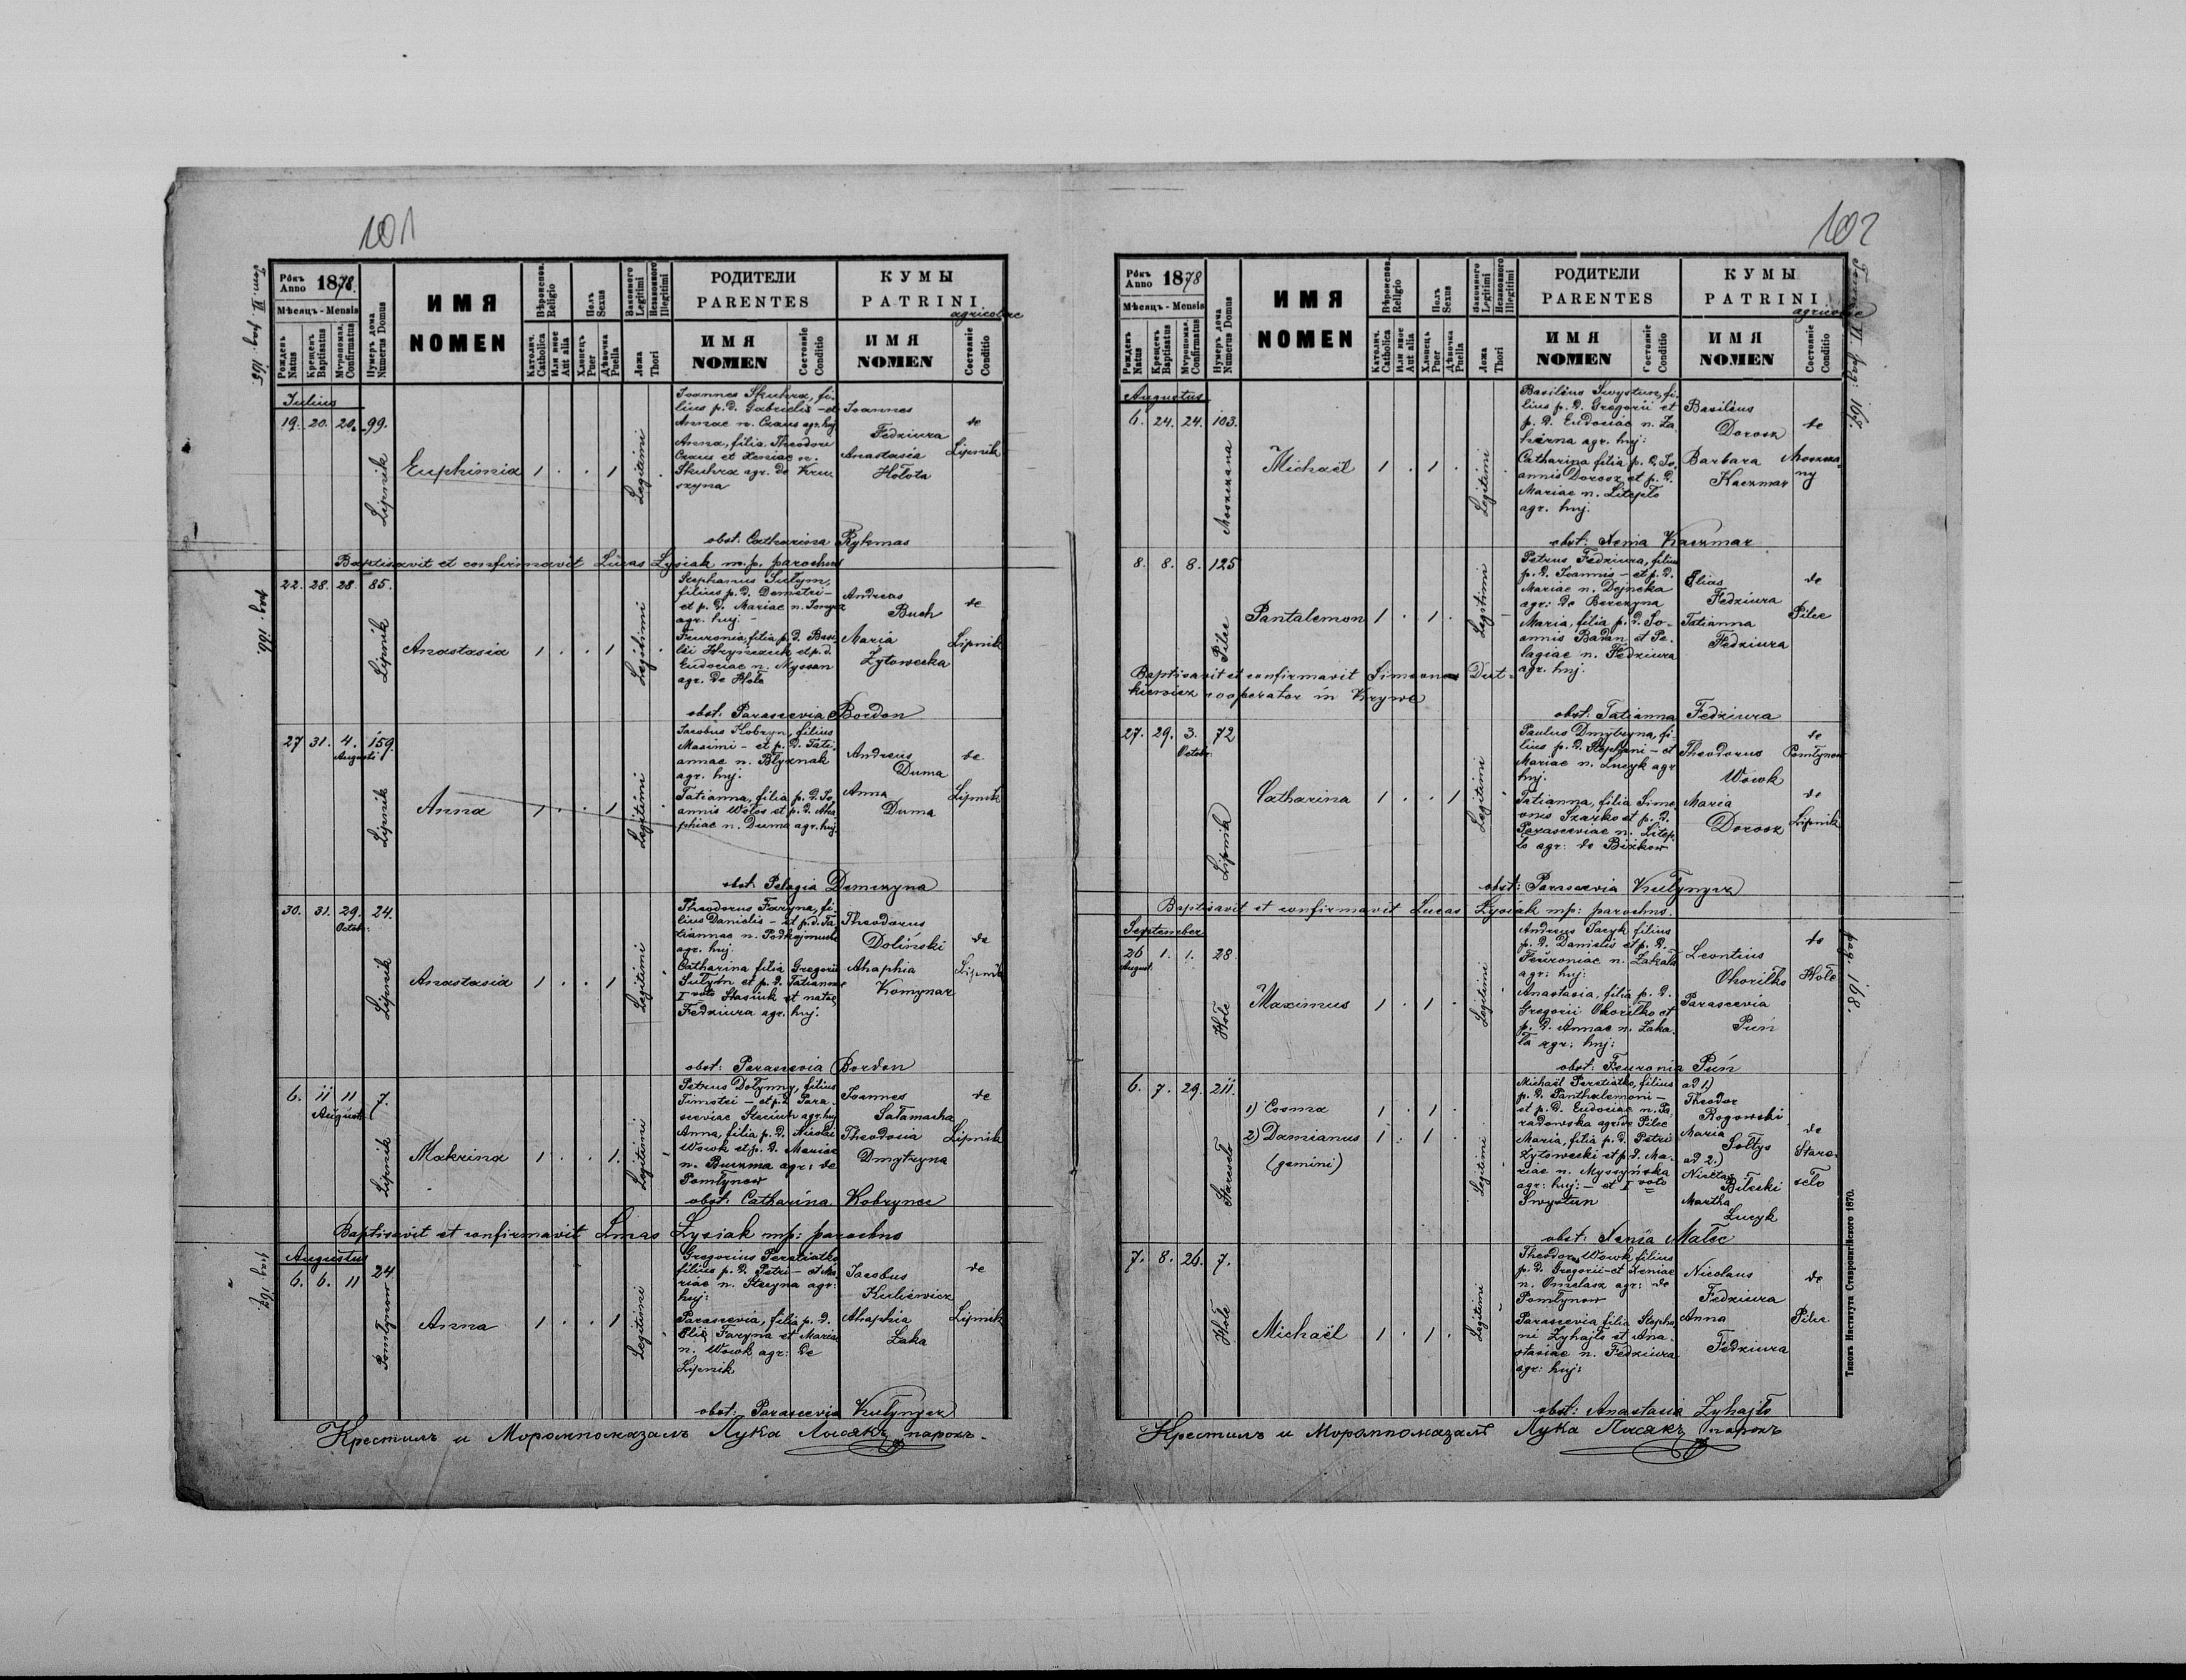 101
Tom. VI pag. 165
Рôкъ Anno 1878.
Мѣсяцъ - Mensis
Рожденъ Natus
Крещенъ Baptisatus
Мѵропомаз. Confirmatus
Нумеръ дома Numerus Domus
ИМЯ
NOMEN
Вѣроиспов. Religio
Католич. Catholica
Или иное Aut alia
Полъ Sexus
Хлопецъ Puer
Дѣвочка Puella
Законного Legitimi
Незаконного Illegitimi
Ложа Thori
РОДИТЕЛИ
PARENTES
ИМЯ
NOMEN
Состоянiе Conditio
КУМЫ
PATRINI
agricolae
ИМЯ
NOMEN
Состоянiе Conditio
Julius
19. 20. 20. 99.
Lipnik
Euphimia 1 . . 1
Legitimi
Joannes Skuhra, fi-
lius p.d. Gabrielis - et
Annae n. Craus agr. huj
Anna, filia Theodori
Craus et Xeniae n.
Skuhra agr. de Kru-
szyna
Joannes
Fedziura
Anastasia
Hołota
de
Lipnik
obst: Catharina Rykmas
Baptisavit et confirmavit Lucas Lysiak m.p. parochus
pag. 166.
22. 28. 28. 85.
Lipnik
Anastasia 1 . . 1
Legitimi
Stephanus Sułym,
filius p.d. Demetri-
et p.d. Mariae n.
agr. huj. -
Feuronia, filia p.d. Basi
lii Hrynczuk et p.d.
Eudociae n. Myssan
agr. de Hołe
Andreas
Buch
Maria
Żytowecka
de
Lipnik
obst: Parascevia Bordon
27 31. 4. Augusti 159.
Lipnik
Anna 1 . . 1
Legitimi
Jacobus Kobryn, filius
Maximi - et p.d. Tati-
annae n. Blyznak
agr. huj.
Tatianna, filia p.d. Jo-
annis Wołos et p.d. Aha
phiae n. Duma agr. huj.
Andreus
Duma
Anna
Duma
de
Lipnik
obst: Pelagia Demczyna
30. 31. 29. Octob: 24.
Lipnik
Anastasia 1 . . 1
Legitimi
Theodorus Faryna, fi-
lius Danielis - et p.d. Ta
tiannae n. Podkojmucha
agr. huj.
Catharina filia Gregorii
Sułym et p.d. Tatiannae
I voto Stasiuk et natae
Fedziura agr. huj.
Theodorus
Doliński
Ahaphia
Komynar
de
Lipnik
obst: Parascevia Bordon
6. 11 11 August 7.
Lipnik
Makrina 1 . . 1.
Legitimi
Petrus Dołynny, filius
Timotei - et p.d. Para-
sceviae Steciuk agr. huj
Anna, filia p.d. Nicolai
Wowk et p.d. Mariae
n. Burzma agr: de
Pomłynow
Joannes
Sałamacha
Theodosia
Dmytryna
de
Lipnik
obst: Catharina Kobrynec
Baptisavit et confirmavit Lucas Lysiak mp: parochus
pag. 167
Augustus
6. 6. 11 24
Pomłynow
Anna 1 . . 1
Legitimi
Gregorius Peretiatko
filius p.d. Petri - et Ma
riae n. Steryna agr:
huj:
Parascevia, filia p.d.
Eliae Faryna et Mariae
n. Wowk agr: de
Lipnik
Jacobus
Kuliewicz
Ahaphia
Łaka
de
Lipnik
obst: Parascevia Kułynycz
Крестилъ и Миропомазалъ Лука Лисякъ парохъ.
102
Tom. VI pag. 165.
Рôкъ Anno 1878
Мѣсяцъ - Mensis
Рожденъ Natus
Крещенъ Baptisatus
Мѵропомаз. Confirmatus
Нумеръ дома Numerus Domus
ИМЯ
NOMEN
Вѣроиспов. Religio
Католич. Catholica
Или иное Aut alia
Полъ Sexus
Хлопецъ Puer
Дѣвочка Puella
Законного Legitimi
Незаконного Illegitimi
Ложа Thori
РОДИТЕЛИ
PARENTES
ИМЯ
NOMEN
Состоянiе Conditio
КУМЫ
PATRINI
agricolae
ИМЯ
NOMEN
Состоянiе Conditio
Augustus
6. 24. 24. 103.
Moszczana
Michaël 1 . 1 .
Legitimi
Basilius Swystun, fi-
lius p.d. Gregorii et
p.d. Eudociae n. Za
hirna agr. huj:
Catharina filia p.d. Jo-
annis Dorosz et p.d.
Mariae n. Litepło
agr. huj.
Basilius
Dorosz
Barbara
Kaczmar
de
Moszcza
ny
obst: Xenia Kaczmar
8. 8. 8. 125
Pilce
Pantalemon 1 . 1 .
Legitimi
Petrus Fedziura, filius
p.d. Joannis - et p.d.
Mariae n. Dejneka
agr: de Berezyna
Maria, filia p.d. Jo-
annis Badan et Pe-
lagiae n. Fedziura
agr. huj.
Elias
Fedziura
Tatianna
Fedziura
de
Pilce
Baptisavit et confirmavit Simeones Dut-
kiewicz cooperator in Krywe
obst: Tatianna Fedziura
27. 29. 3. Octobr 72
Lipnik
Catharina 1 . . 1
Legitimi
Paulus Dmytryna, fi-
lius p.d. Stephani - et
Mariae n. Lucyk agr
huj.
Tatianna, filia Sime
onis Szarko et p.d.
Parasceviae n. Litep
ło agr: de Bizkow
Theodorus
Wowk
Maria
Dorosz
de
Pomłynow
de
Lipnik
obst: Parascevia Kułynycz
Baptisavit et confirmavit Lucas Lysiak mp: parochus.
pag. 168.
September
26 August. 1. 1. 28.
Hołe
Maximus 1 . 1 .
Legitimi
Andreus Jacyk filius
p.d. Danielis et p.d.
Feuroniae n. Zakala
agr: huj:
Anastasia, filia p.d.
Gregorii Ohorilko et
p.d. Annae n. Zaka-
ła agr: huj:
Leontius
Ohorilko
Parascevia
Puń
de
Hołe
obst: Feuronia Puń
6. 7. 29. 211.
Stareseło
1) Cosma 1 . 1 .
2) Damianus 1 . 1
(gemini)
Legitimi
Michaël Peretiatko, filius
p.d. Panthalemoni -
et p.d. Eudociae n. Pa
radowska agr: de Pilce
Maria, filia p.d. Petri
Żytowecki et p.d. Ma-
riae n. Myssyńska
agr: huj: - et I voto
Swystun
ad 1)
Theodor
Rogowski
Maria
Sołtys
ad 2.)
Nicetas
Bileski
Martha
Lucyk
de
Stare-
seło
obst: Xenia Malec
7. 8. 26. 7.
Hołe
Michaël 1 . 1 .
Legitimi
Theodorus Wowk filius
p.d. Gregorii - et Xeniae
n. Omelasz agr: de
Pomłynow
Parascevia filia Stepha
ni Zyhajło et Ana-
stasiae n. Fedziura
agr: huj:
Nicolaus
Fedziura
Anna
Fedziura
de
Pilce
obst: Anastasia Zyhajło
Крестилъ и Миропомазалъ Лука Лисякъ парохъ
Типомъ Института Ставропигiйского 1870.